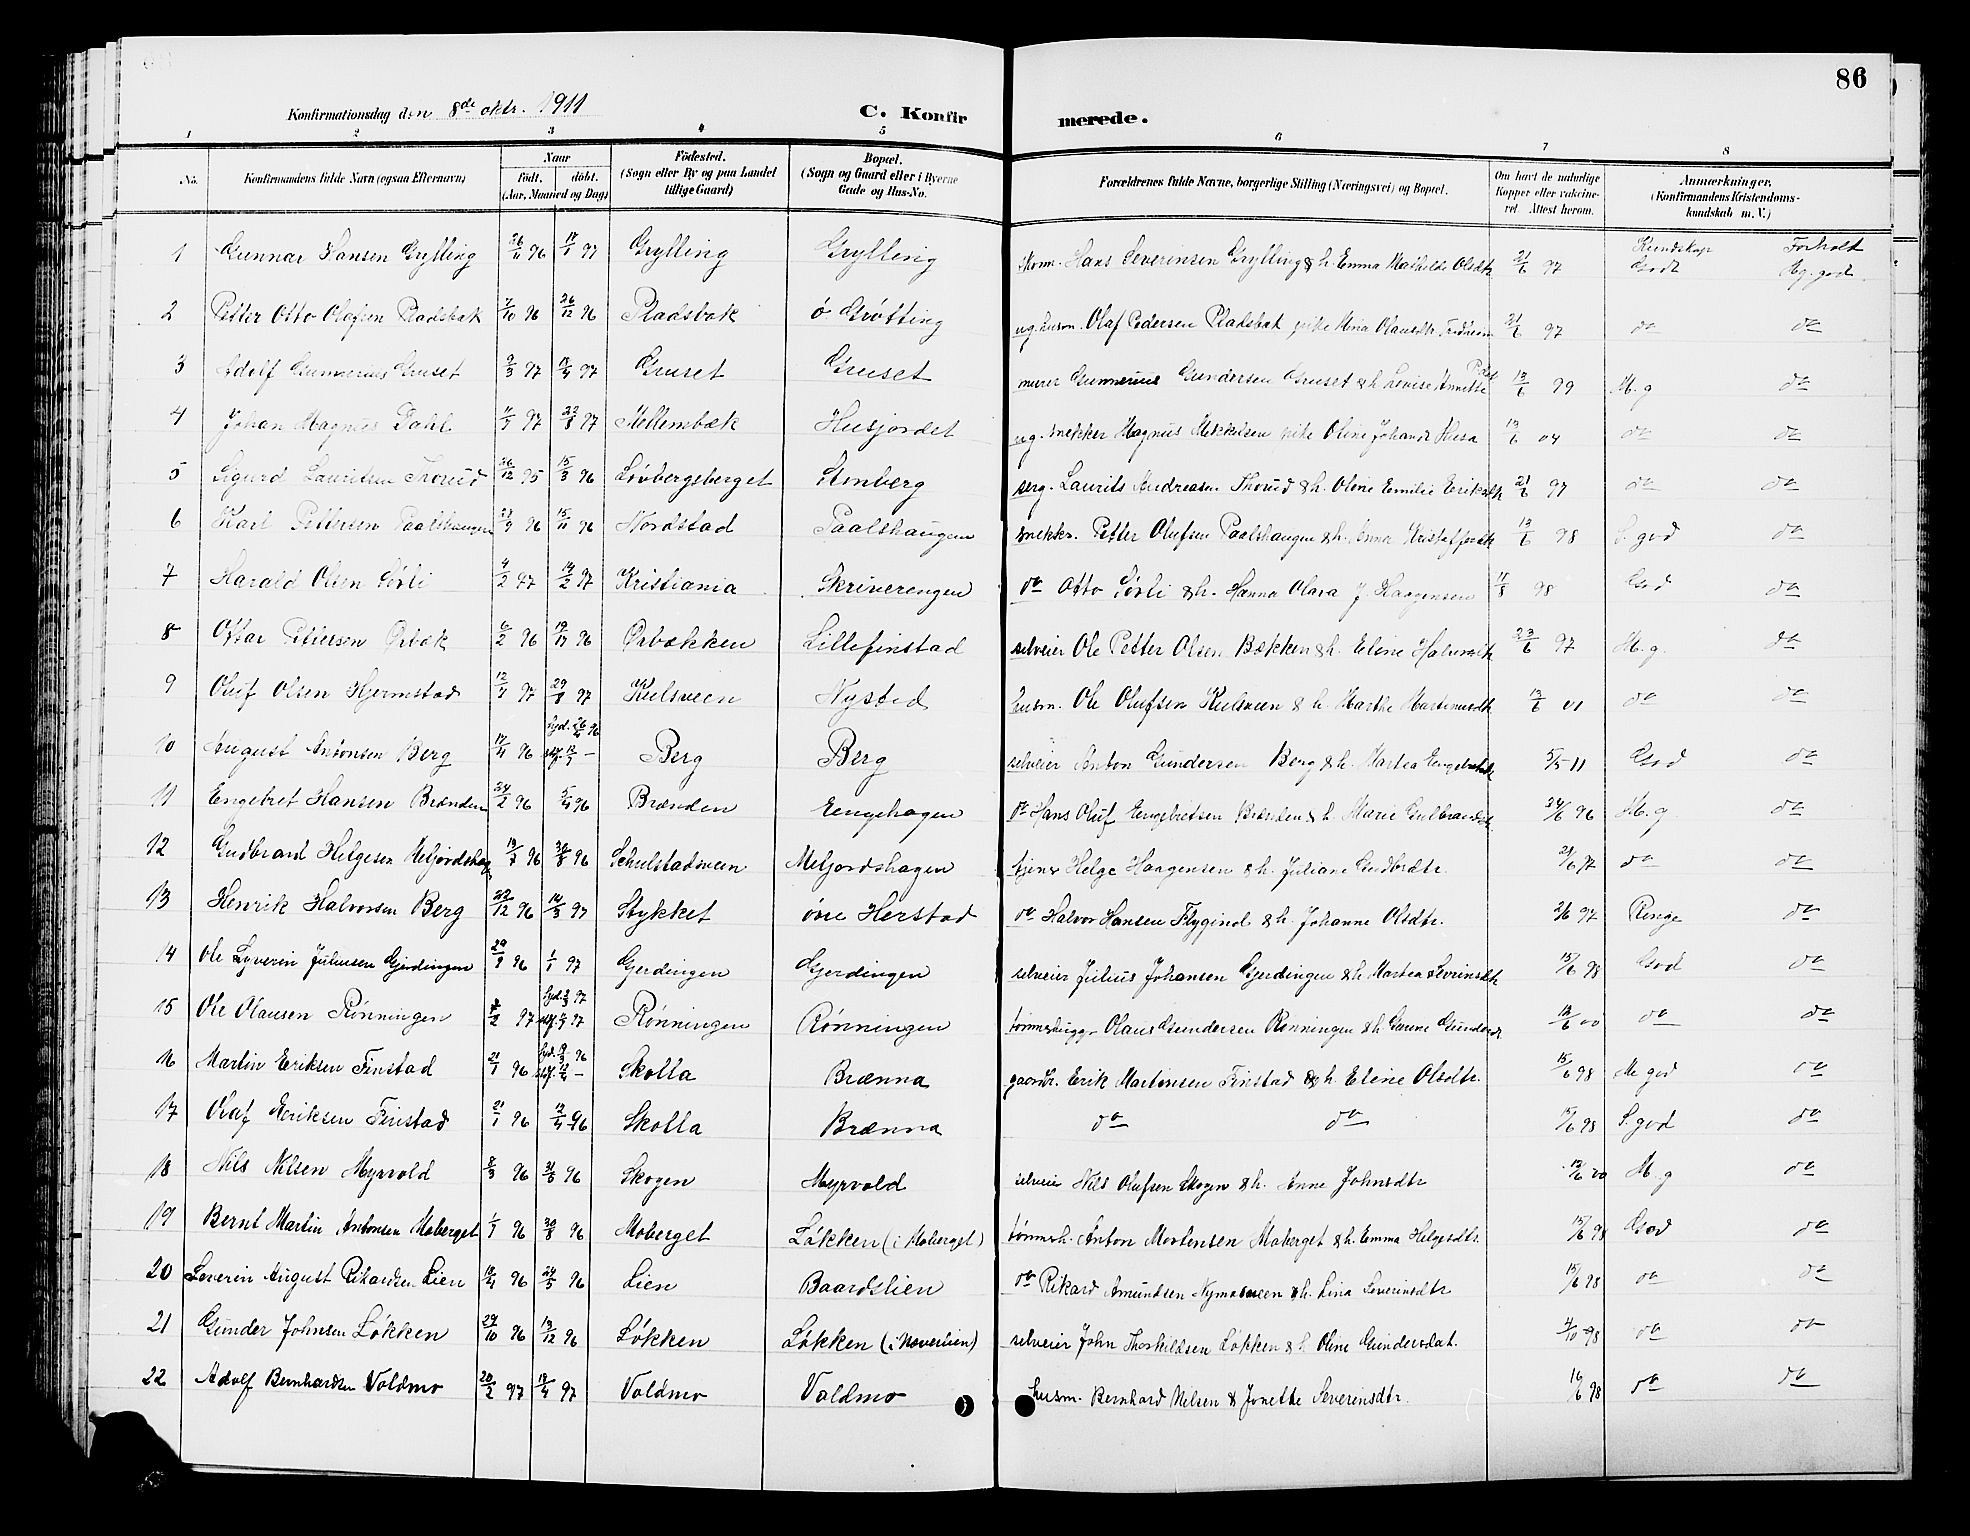 86
Konfirmationsdag den 8de oktr. 1911 C. Konfirmerede.
1 2 3 4 5 6 7 8
No. Konfirmandens fulde Navn (ogsaa Efternavn) Naar født. døbt. (Aar, Maaned og Dag) Fødested. (Sogn eller By og paa Landet tillige Gaard) Bopæl. (Sogn og Gaard eller i Byerne Gade og Hus-No. Forældrenes fulde Navne, borgerlige Stilling (Næringsvei) og Bopæl. Om havt de naturlige Kopper eller vaccineret Attest herom. Anmærkninger. (Konfirmandens Kristendomskundskab m. V.)
Kundskap Forhold
1 Gunnar Hansen Grylling 26/11 96 17/1 97 Grylling Grylling Hans Severinsen Grylling & h. Emma Mathilde Olsdtr 21/6 97 Godt Mg. god
2 Petter Otto Olafsen Pladsbak 7/10 96 26/12 96 Pladsbak ø Grøtting ug. husm. Olaf Pedersen Pladsbak pike Mina Olausdtr. 21/6 97 do do
3 Adolf Gunnerius Gruset 9/3 97 19/4 97 Gruset Gruset murer Gunnerius Gundersen Gruset & h. Lovise Annette 13/6 99 M. g do
4 Johan Magnus Dahl 97 22/8 97 Mellembæk Husjordet ug. snekker Magnus Mikkelsen pike Oline Johansd. Husa 13/6 04 do do
5 Sigurd Lauritsen Thorud 26/12 95 15/3 96 Løvbergsberget Stenberg serg. Laurits Andreasen Thorud & h. Oline Emilie Eriksdtr 21/6 97 do do
6 Karl Pettersen Paalshaugen 27/9 96 15/11 96 Nordstad Paalshaugen snekkr. Petter Olufsen Paalshaugen & h. Anna Kristoffersdtr 13/6 98 S. god do
7 Harald Olsen Sørli 4/2 97 14/2 97 Kristiania Skriverengen do Otto Sørli & h. Hanna Olava J. Haagensen 11/8 98 God do
8 Ottar Pettersen Ørbæk 6/2 96 96 Ørbækken Lillefinstad selveier Ole Petter Olsen Bækken & h. Eline Halvorsdtr 23/6 97 M. g. do
9 Oluf Olsen Hjermstad 97 29/8 97 Kulsveen Nysted husm. Ole Olufsen Kulsveen & h. Marthe Martinusdtr 13/6 01 do do
10 August Antonsen Berg 17/4 96 hjd. 26/4 96 Berg Berg selveier Anton Gundersen Berg & h. Martea Engebretsdtr 5/5 11 God do
11 Engebret Hansen Brænden 24/2 96 5/4 96 Brænden Engehagen do Hans Oluf Engebretsen Brænden & h. Marie Gulbrandsdtr 24/6 96 M. g. do
12 Gudbrand Helgesen Meljordshag 19/7 96 30/8 96 Schulstadsveen Meljordshagen tjener Helge Haagensen & h. Juliane Gudbrdtr. 21/6 97 do do
13 Henrik Halvorsen Berg 22/12 96 14/3 97 Stykket øvre Herstad do Halvor Hansen Flygind & h. Johanne Olsdtr. 2/6 97 Ringe do
14 Ole Syverin Juliussen Gjerdingen 29/9 96 1/1 97 Gjerdingen Gjerdingen selveier Julius Johansen Gjerdingen & h. Martea Severinsdtr 15/6 98 God do
15 Ole Olausen Rønningen 97 hjd. 97 97 Rønningen Rønningen tømmerhugger Olaus Gundersen Rønningen & h. Gundersdtr 13/6 00 do do
16 Martin Eriksen Finstad 21/1 96 hjd. 96 Skolla Brænna gaardbr. Erik Martinsen Finstad & h. Eline Olsdtr. 15/6 98 M god do
17 Olaf Eriksen Finstad 21/1 96 12/4 96 Skolla Brænna do do 15/6 98 S. god do
18 Nils Nilsen Myrvold 8/3 96 31/5 96 Skogen Myrvold selveier Nils Olufsen Skogen & h. Anne Johnsdtr 13/6 00 M. g do
19 Bernt Martin Antonsen Moberget 96 30/8 96 Moberget Løkken (i Moberget) tømmerh. Anton Mortensen Moberget & h. Emma Helgesdtr. 15/6 98 God do
20 Severin August Rikardsen Lien 19/4 96 24/5 96 Lien Baardslien do Rikard Amundsen Nymoeneen & h. Lina Severinsdtr 15/6 98 do do
21 Gunder Johnsen Løkken 29/10 96 13/12 96 Løkken Løkken (i Moverlien) selveier John Thorkildsen Løkken & h Oline Gundersdat. 4/10 98 do do
22 Adolf Bernhardsen Voldmo 20/2 97 19/4 97 Voldmo Voldmo husm. Bernhard Nilsen & Jonette Severinsdtr. 16/6 98 do do